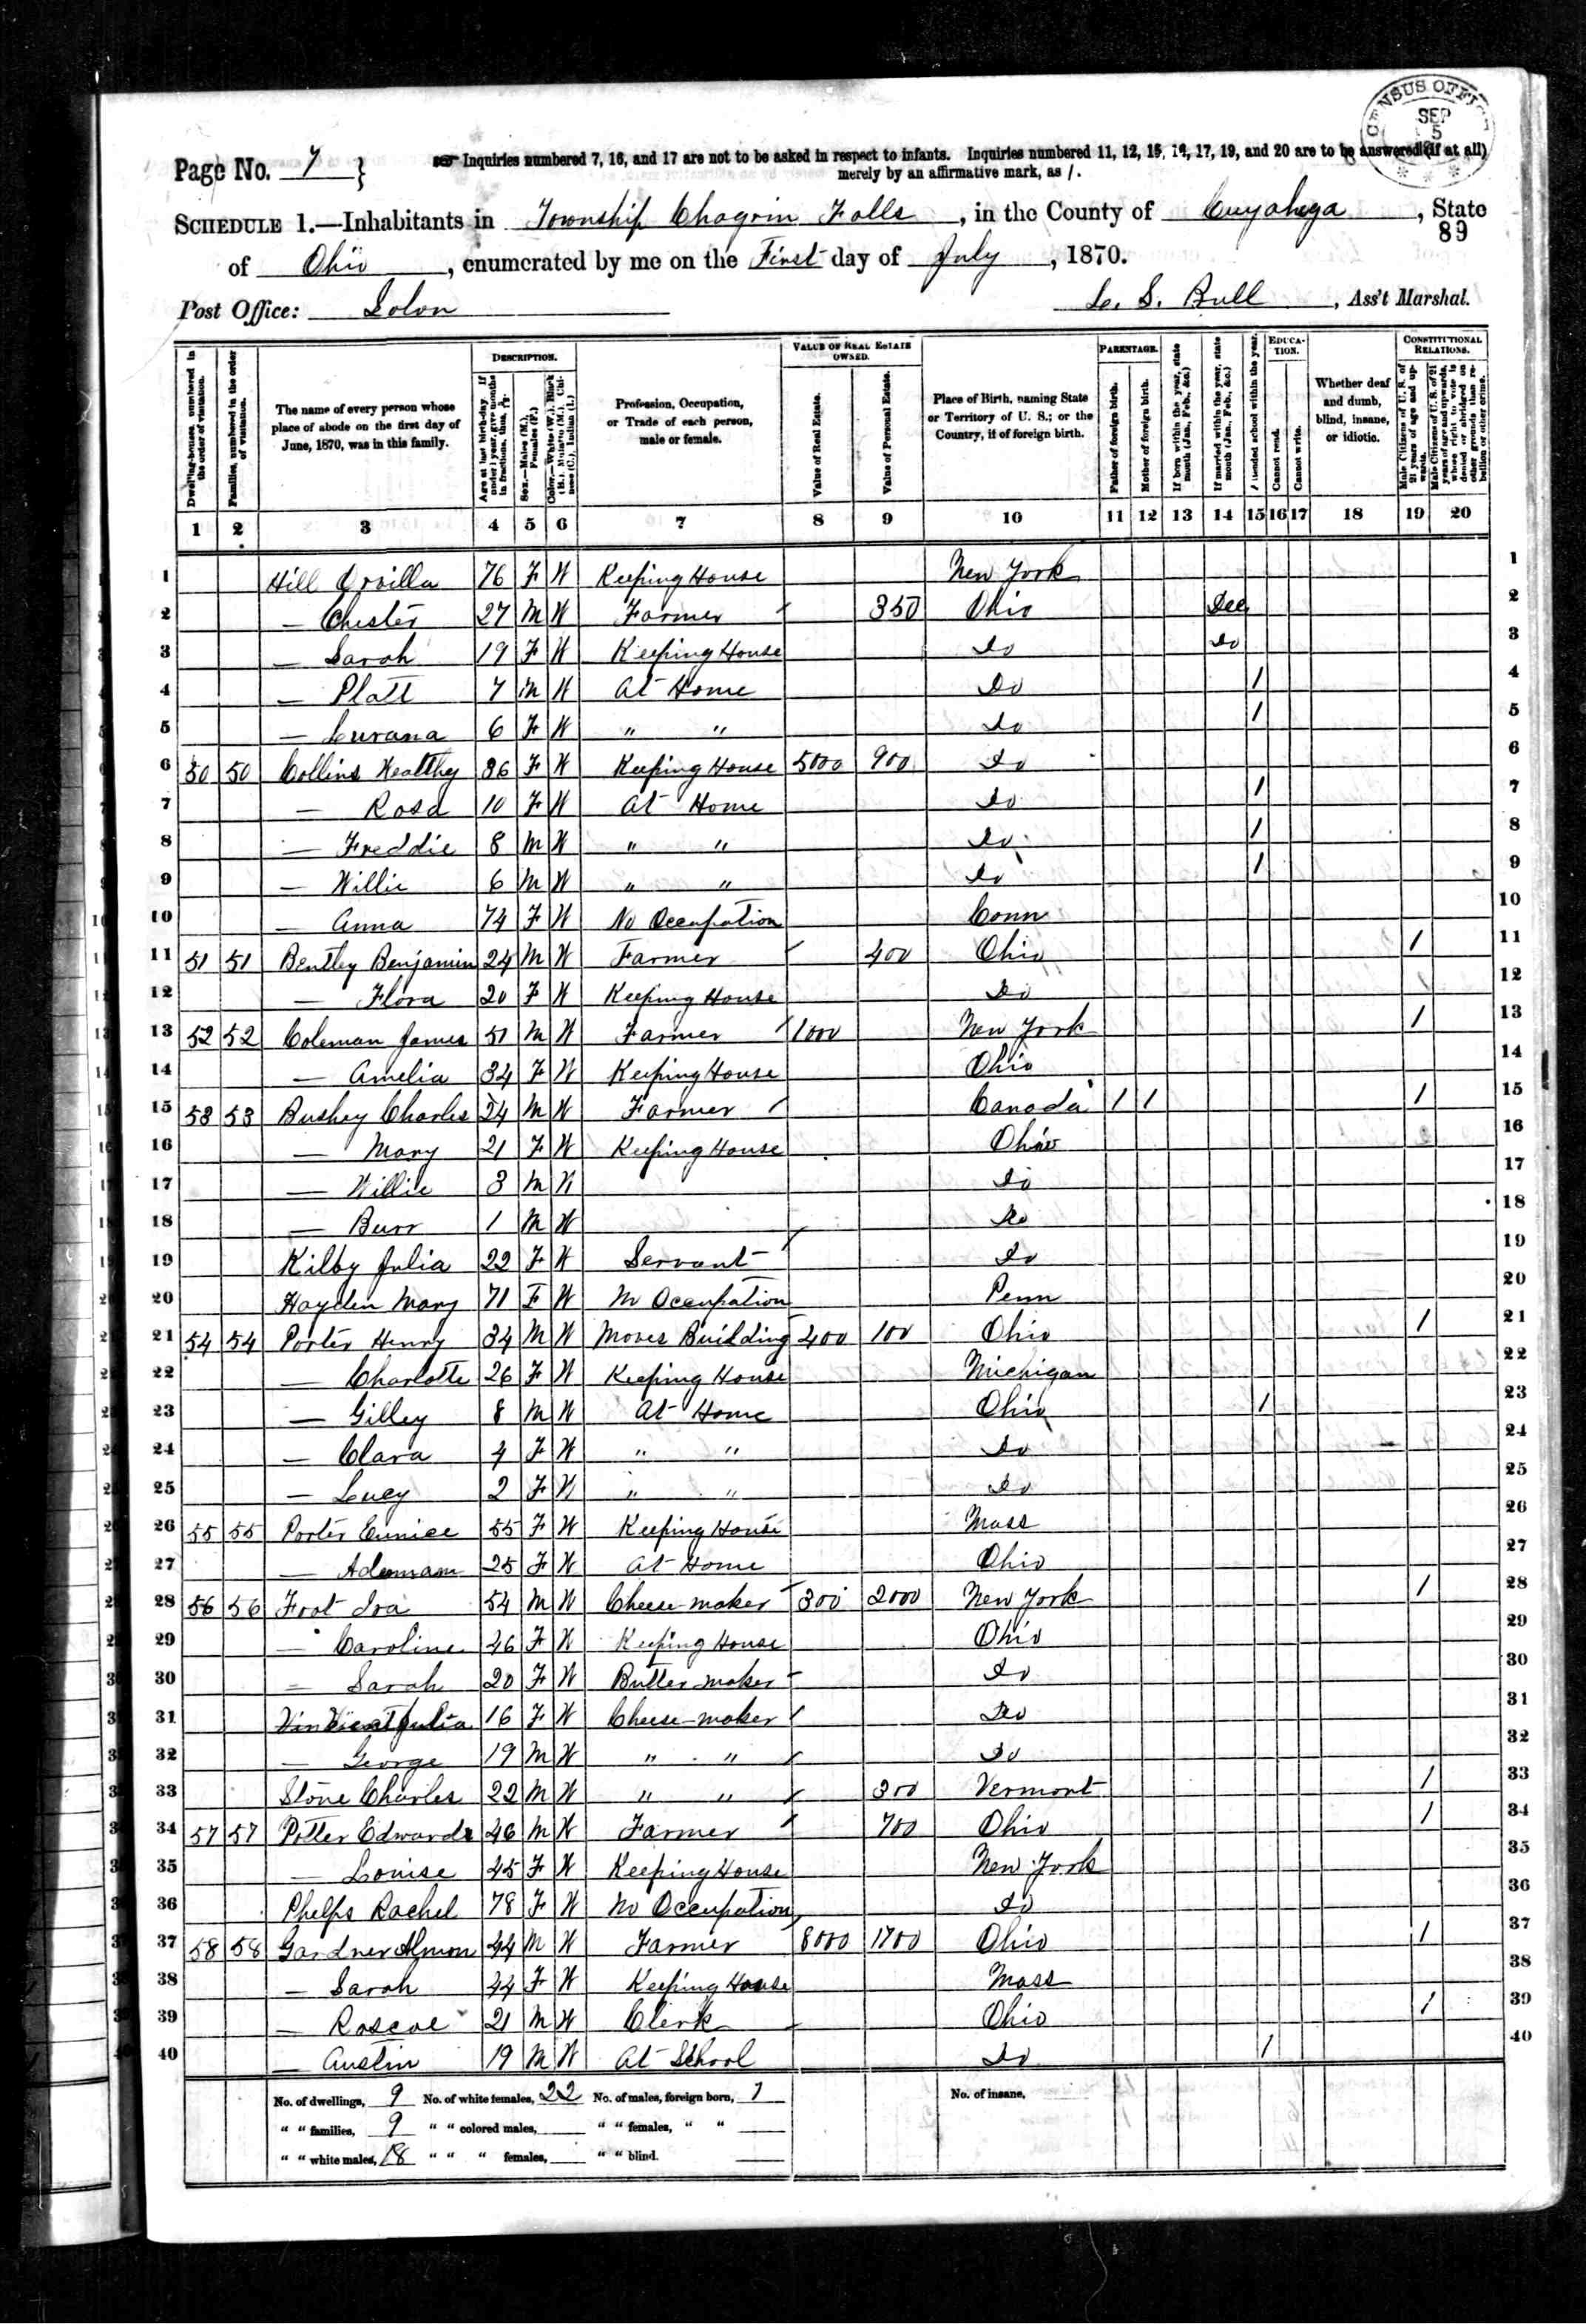 CENSUS OFFICE
SEP
5
Page No. 7 }
Inquiries numbered 7, 16, and 17 are not to be asked in respect to infants. Inquiries numbered 11, 12, 15, 16, 17, 19, and 20 are to be answered (if at all)
merely by an affirmative mark, as /.
SCHEDULE 1.—Inhabitants in Township Chagrin Falls, in the County of Cuyahoga, State
89
of Ohio, enumerated by me on the First day of July, 1870.
Post Office: Solon
S. Bull, Ass't Marshal.
Dwelling-houses, numbered in the order of visitation.
Families, numbered in the order of visitation.
The name of every person whose place of abode on the first day of June, 1870, was in this family.
DESCRIPTION.
Age at last birth-day. If under 1 year, give months in fractions, thus, 3/12
Sex.—Males (M.), Females (F.)
Color.—White (W.), Black (B.), Mulatto (M.), Chinese (C.), Indian (I.)
Profession, Occupation, or Trade of each person, male or female.
VALUE OF REAL ESTATE OWNED.
Value of Real Estate.
Value of Personal Estate.
Place of Birth, naming State or Territory of U. S.; or the Country, if of foreign birth.
PARENTAGE.
Father of foreign birth.
Mother of foreign birth.
If born within the year, state month (Jan., Feb., &c.)
If married within the year, state month (Jan., Feb., &c.)
Attended school within the year.
EDUCATION.
Cannot read.
Cannot write.
Whether deaf and dumb, blind, insane, or idiotic.
CONSTITUTIONAL RELATIONS.
Male Citizens of U. S. of 21 years of age and upwards.
Male Citizens of U. S. of 21 years of age and upwards, whose right to vote is denied or abridged on other grounds than rebellion or other crime.
1 2 3 4 5 6 7 8 9 10 11 12 13 14 15 16 17 18 19 20
1 Hill Orvilla 76 F W Keeping House New York 1
2 — Chester 27 M W Farmer 350 Ohio Dec 2
3 — Sarah 19 F W Keeping House Do Do 3
4 — Platt 7 M W At Home Do / 4
5 — Lurana 6 F W " " Do / 5
6 50 50 Collins Wealthy 36 F W Keeping House 5000 900 Do 6
7 — Rosa 10 F W At Home Do / 7
8 — Freddie 8 M W " " Do / 8
9 — Willie 6 M W " " Do / 9
10 — Anna 74 F W No Occupation Conn 10
11 51 51 Bentley Benjamin 24 M W Farmer 400 Ohio / 11
12 — Flora 20 F W Keeping House Do 12
13 52 52 Coleman James 51 M W Farmer 1000 New York / 13
14 — Amelia 34 F W Keeping House Ohio 14
15 53 53 Bushey Charles 24 M W Farmer Canada / / / 15
16 — Mary 21 F W Keeping House Ohio 16
17 — Willie 3 M W Do 17
18 — Burr 1 M W Do 18
19 Kilby Julia 22 F W Servant Do 19
20 Hayden Mary 71 F W No Occupation Penn 20
21 54 54 Porter Henry 34 M W Moves Building 400 100 Ohio / 21
22 — Charlotte 26 F W Keeping House Michigan 22
23 — Gilley 8 M W At Home Ohio / 23
24 — Clara 4 F W " " Do 24
25 — Lucy 2 F W " " Do 25
26 55 55 Porter Eunice 55 F W Keeping House Mass 26
27 — 25 F W At Home Ohio 27
28 56 56 Foot Ira 54 M W Cheese-maker 300 2000 New York / 28
29 — Caroline 46 F W Keeping House Ohio 29
30 — Sarah 20 F W Butter-maker Do 30
31 Julia 16 F W Cheese-maker Do 31
32 — George 19 M W " " Do 32
33 Stone Charles 22 M W " " 300 Vermont / 33
34 57 57 Potter Edwards 46 M W Farmer 700 Ohio / 34
35 — Louise 45 F W Keeping House New York 35
36 Phelps Rachel 78 F W No Occupation Do 36
37 58 58 Gardner Almon 44 M W Farmer 8000 1700 Ohio / 37
38 — Sarah 44 F W Keeping House Mass 38
39 — Roscoe 21 M W Clerk Ohio / 39
40 — Austin 19 M W At School Do / 40
No. of dwellings, 9 No. of white females, 22 No. of males, foreign born, 1 No. of insane,
" " families, 9 " " colored males, " " females, " "
" " white males, 18 " " " females, " " blind.